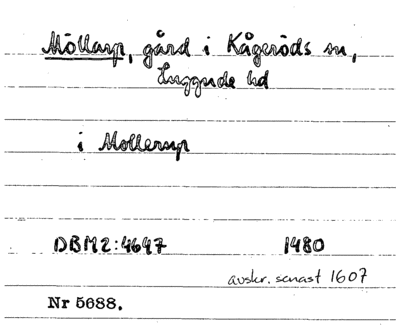 Möllarp, gård i Kågeröds sn,
Luggude hd
i Mollerup
DBM2:4647 1480
avskr. senast 1607
Nr 5688.